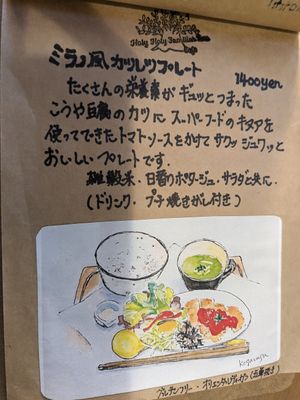 Holy Holy Familiar
cafe
ミラノ風カツレツプレート
1400yen
たくさんの栄養素がギュッとつまった
こうや豆腐のカツに スーパーフードのキヌアを
使ってできたトマトソースをかけてサクッジュワッと
おいしいプレートです.
雑穀米・日替りポタージュ・サラダと共に.
(ドリンク・プチ焼きがし付き)
グルテンフリー・オリエンタルヴィーガン